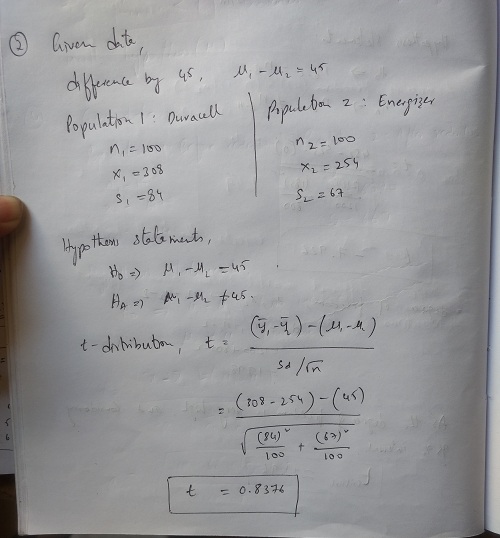 ② Given date,
difference by 45, μ₁ - μ₂ = 45
Population 1 : Duracell
n₁ = 100
x₁ = 308
s₁ = 84
Population 2 : Energizer
n₂ = 100
x₂ = 254
s₂ = 67
Hypothesis statements,
H₀ => μ₁ - μ₂ = 45
Hₐ => μ₁ - μ₂ ≠ 45.
t-distribution, t = (ȳ₁ - ȳ₂) - (μ₁ - μ) / sd/√n
= (308 - 254) - (45) / √((84)²/100 + (67)²/100)
t = 0.8376